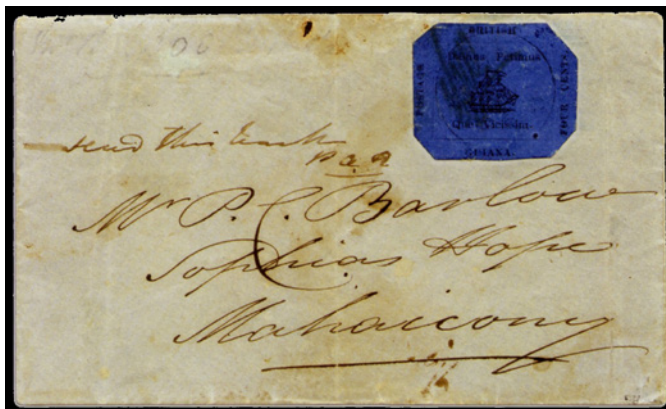 BRITISH
Damus Petimus
Que Vicissim.
POSTAGE
FOUR CENTS
GUIANA.
send this back
Mr. P. C. Barlow
Sophias Hope
Mahaicony